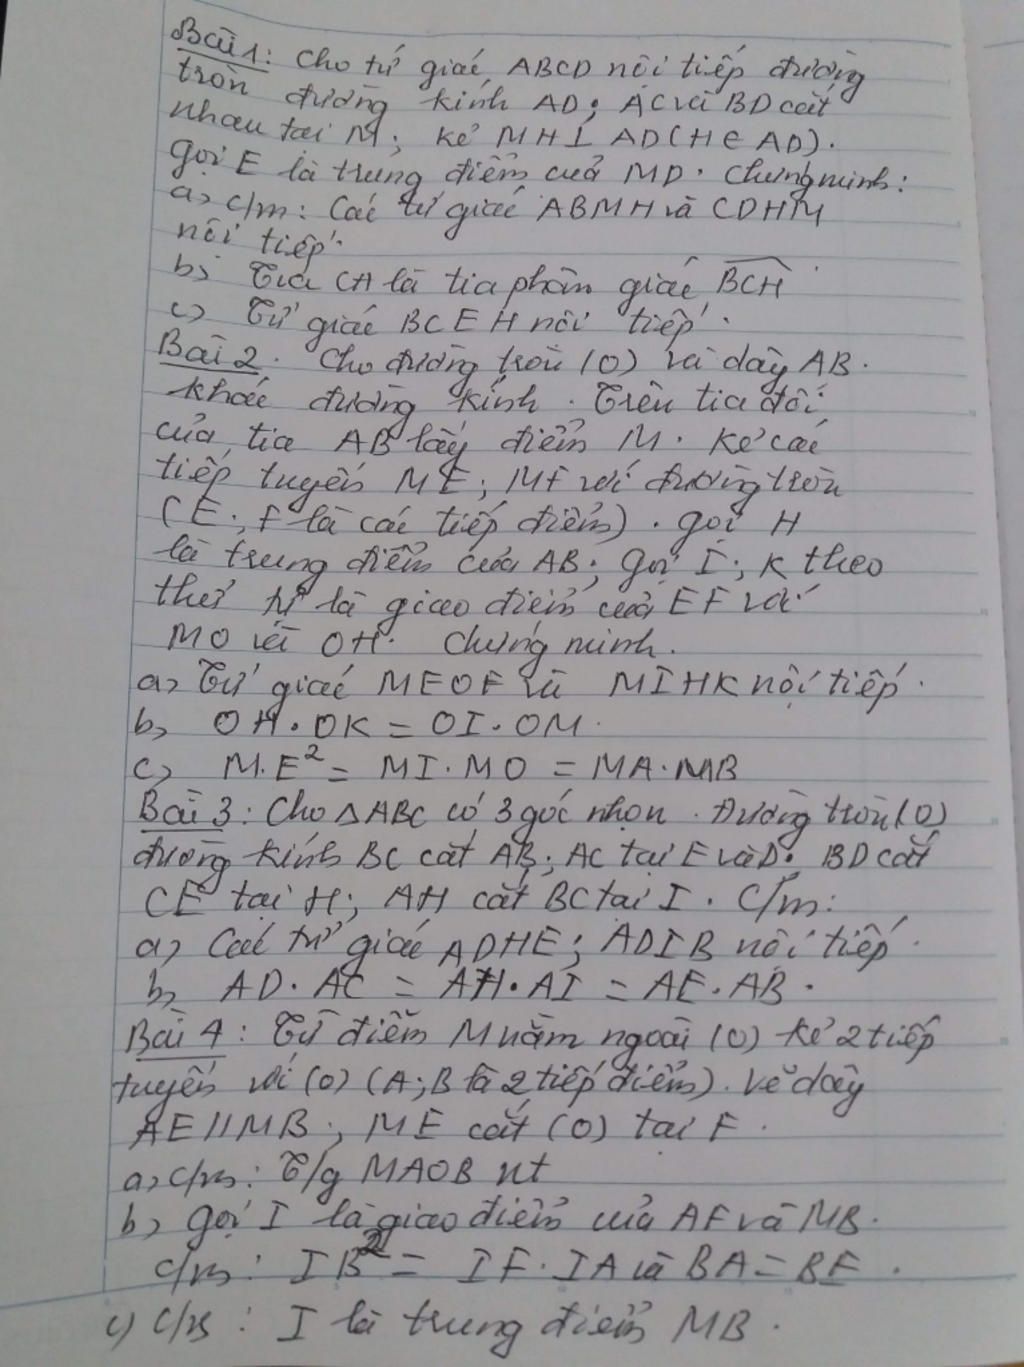 Bài 1: Cho tứ giác ABCD nội tiếp đường
tròn đường kính AD; AC và BD cắt
nhau tại M; kẻ MH⊥AD(H∈AD).
Gọi E là trung điểm của MD. Chứng minh:
a, c/m: Các tứ giác ABMH và CDHM
nội tiếp.
b, Tia CA là tia phân giác BCH
c, Tứ giác BCEH nội tiếp.
Bài 2. Cho đường tròn (O) và dây AB.
khác đường kính. Trên tia đối
của tia AB lấy điểm M. Kẻ các
tiếp tuyến ME; MF với đường tròn
(E; F là các tiếp điểm). Gọi H
là trung điểm của AB; Gọi I; K theo
thứ tự là giao điểm của EF với
MO và OH. Chứng minh.
a, Tứ giác MEOF và MIHK nội tiếp.
b, OH.OK = OI.OM.
c, M.E² = MI.MO = MA.MB
Bài 3: Cho ΔABC có 3 góc nhọn. Đường tròn (O)
đường kính BC cắt AB; AC tại E và D. BD cắt
CE tại H; AH cắt BC tại I. C/m:
a, Các tứ giác ADHE; ADIB nội tiếp.
b, AD.AC = AH.AI = AE.AB.
Bài 4: Từ điểm M nằm ngoài (O) kẻ 2 tiếp
tuyến với (O) (A; B là 2 tiếp điểm). Vẽ dây
AE//MB; ME cắt (O) tại F.
a, c/m: T/g MAOB nt
b, Gọi I là giao điểm của AF và MB.
c/m: IB² = IF.IA và BA = BE.
c, c/m: I là trung điểm MB.